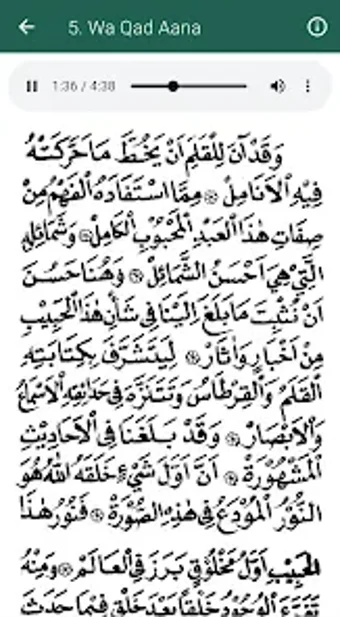 5. Wa Qad Aana
1:36 / 4:38
وَقَدْ آنَ لِلْقَلَمِ اَنْ يَخُطَّ مَا حَرَّكَتْهُ
فِيْهِ الْاَنَامِلْ ۞ مِمَّا اسْتَفَادَهُ الْفَهْمُ مِنْ
صِفَاتِ هٰذَا الْعَبْدِ الْمَحْبُوْبِ الْكَامِلْ ۞ وَشَمَائِلِهِ
الَّتِيْ هِيَ اَحْسَنُ الشَّمَائِلْ ۞ وَهُنَا حَسُنَ
اَنْ نُثْبِتَ مَا بَلَغَ اِلَيْنَا فِيْ شَأْنِ هٰذَا الْحَبِيْبِ
مِنْ اَخْبَارٍ وَاٰثَارْ ۞ لِيَتَشَرَّفَ بِكِتَابَتِهِ
الْقَلَمُ وَالْقِرْطَاسُ وَتَتَنَزَّهَ فِيْ حَدَائِقِهِ الْاَسْمَاعُ
وَالْاَبْصَارْ ۞ وَقَدْ بَلَغَنَا فِي الْاَحَادِيْثِ
الْمَشْهُوْرَةْ ۞ اَنَّ اَوَّلَ شَيْءٍ خَلَقَهُ اللهُ هُوَ
النُّوْرُ الْمُوْدَعُ فِيْ هٰذِهِ الصُّوْرَةْ ۞ فَنُوْرُ هٰذَا
الْحَبِيْبِ اَوَّلُ مَخْلُوْقٍ بَرَزَ فِي الْعَالَمْ ۞ وَمِنْهُ
تَفَرَّعَ الْوُجُوْدُ خَلْقًا بَعْدَ خَلْقٍ فِيْمَا حَدَثَ